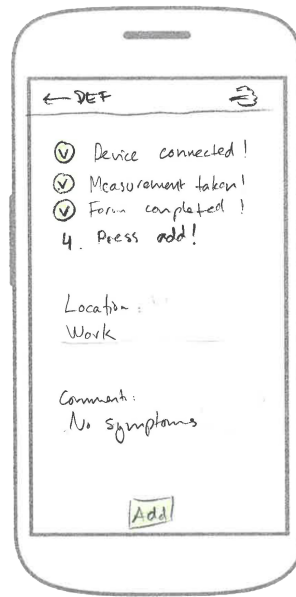 ← DEF
✓ Device connected!
✓ Measurement taken!
✓ Form completed!
4. Press add!
Location:
Work
Comment:
No symptoms
Add